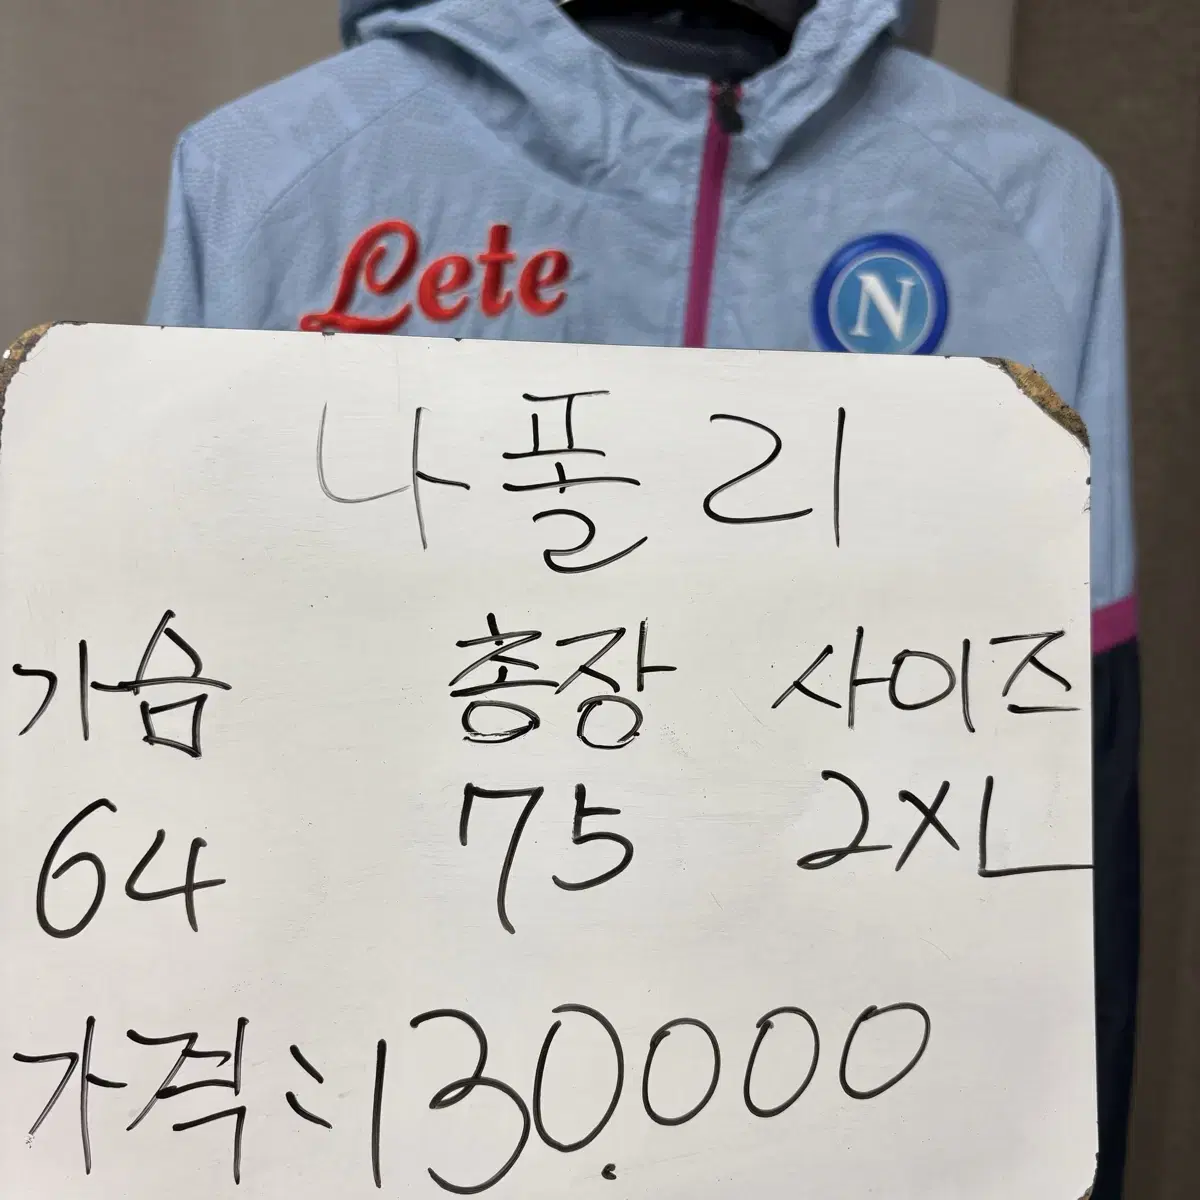 Lete
N
나폴리
가슴 총장 사이즈
64 75 2XL
가격 : 130.000